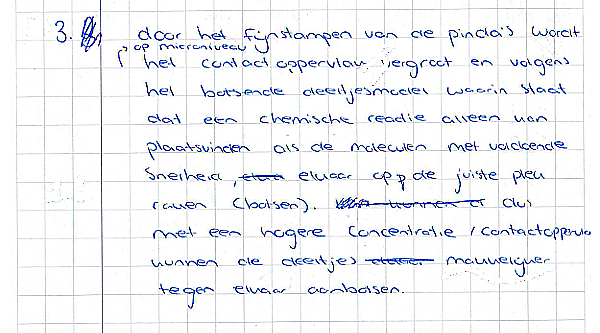 3. door het fijnstampen van de pinda's wordt
op microniveau
het contactoppervlak vergroot en volgens
het botsende deeltjesmodel waarin staat
dat een chemische reactie alleen kan
plaatsvinden als de moleculen met voldoende
snelheid, elkaar op de juiste plek
raken (botsen). dus
met een hogere concentratie / contactoppervla
kunnen de deeltjes makkelijker
tegen elkaar aanbotsen.